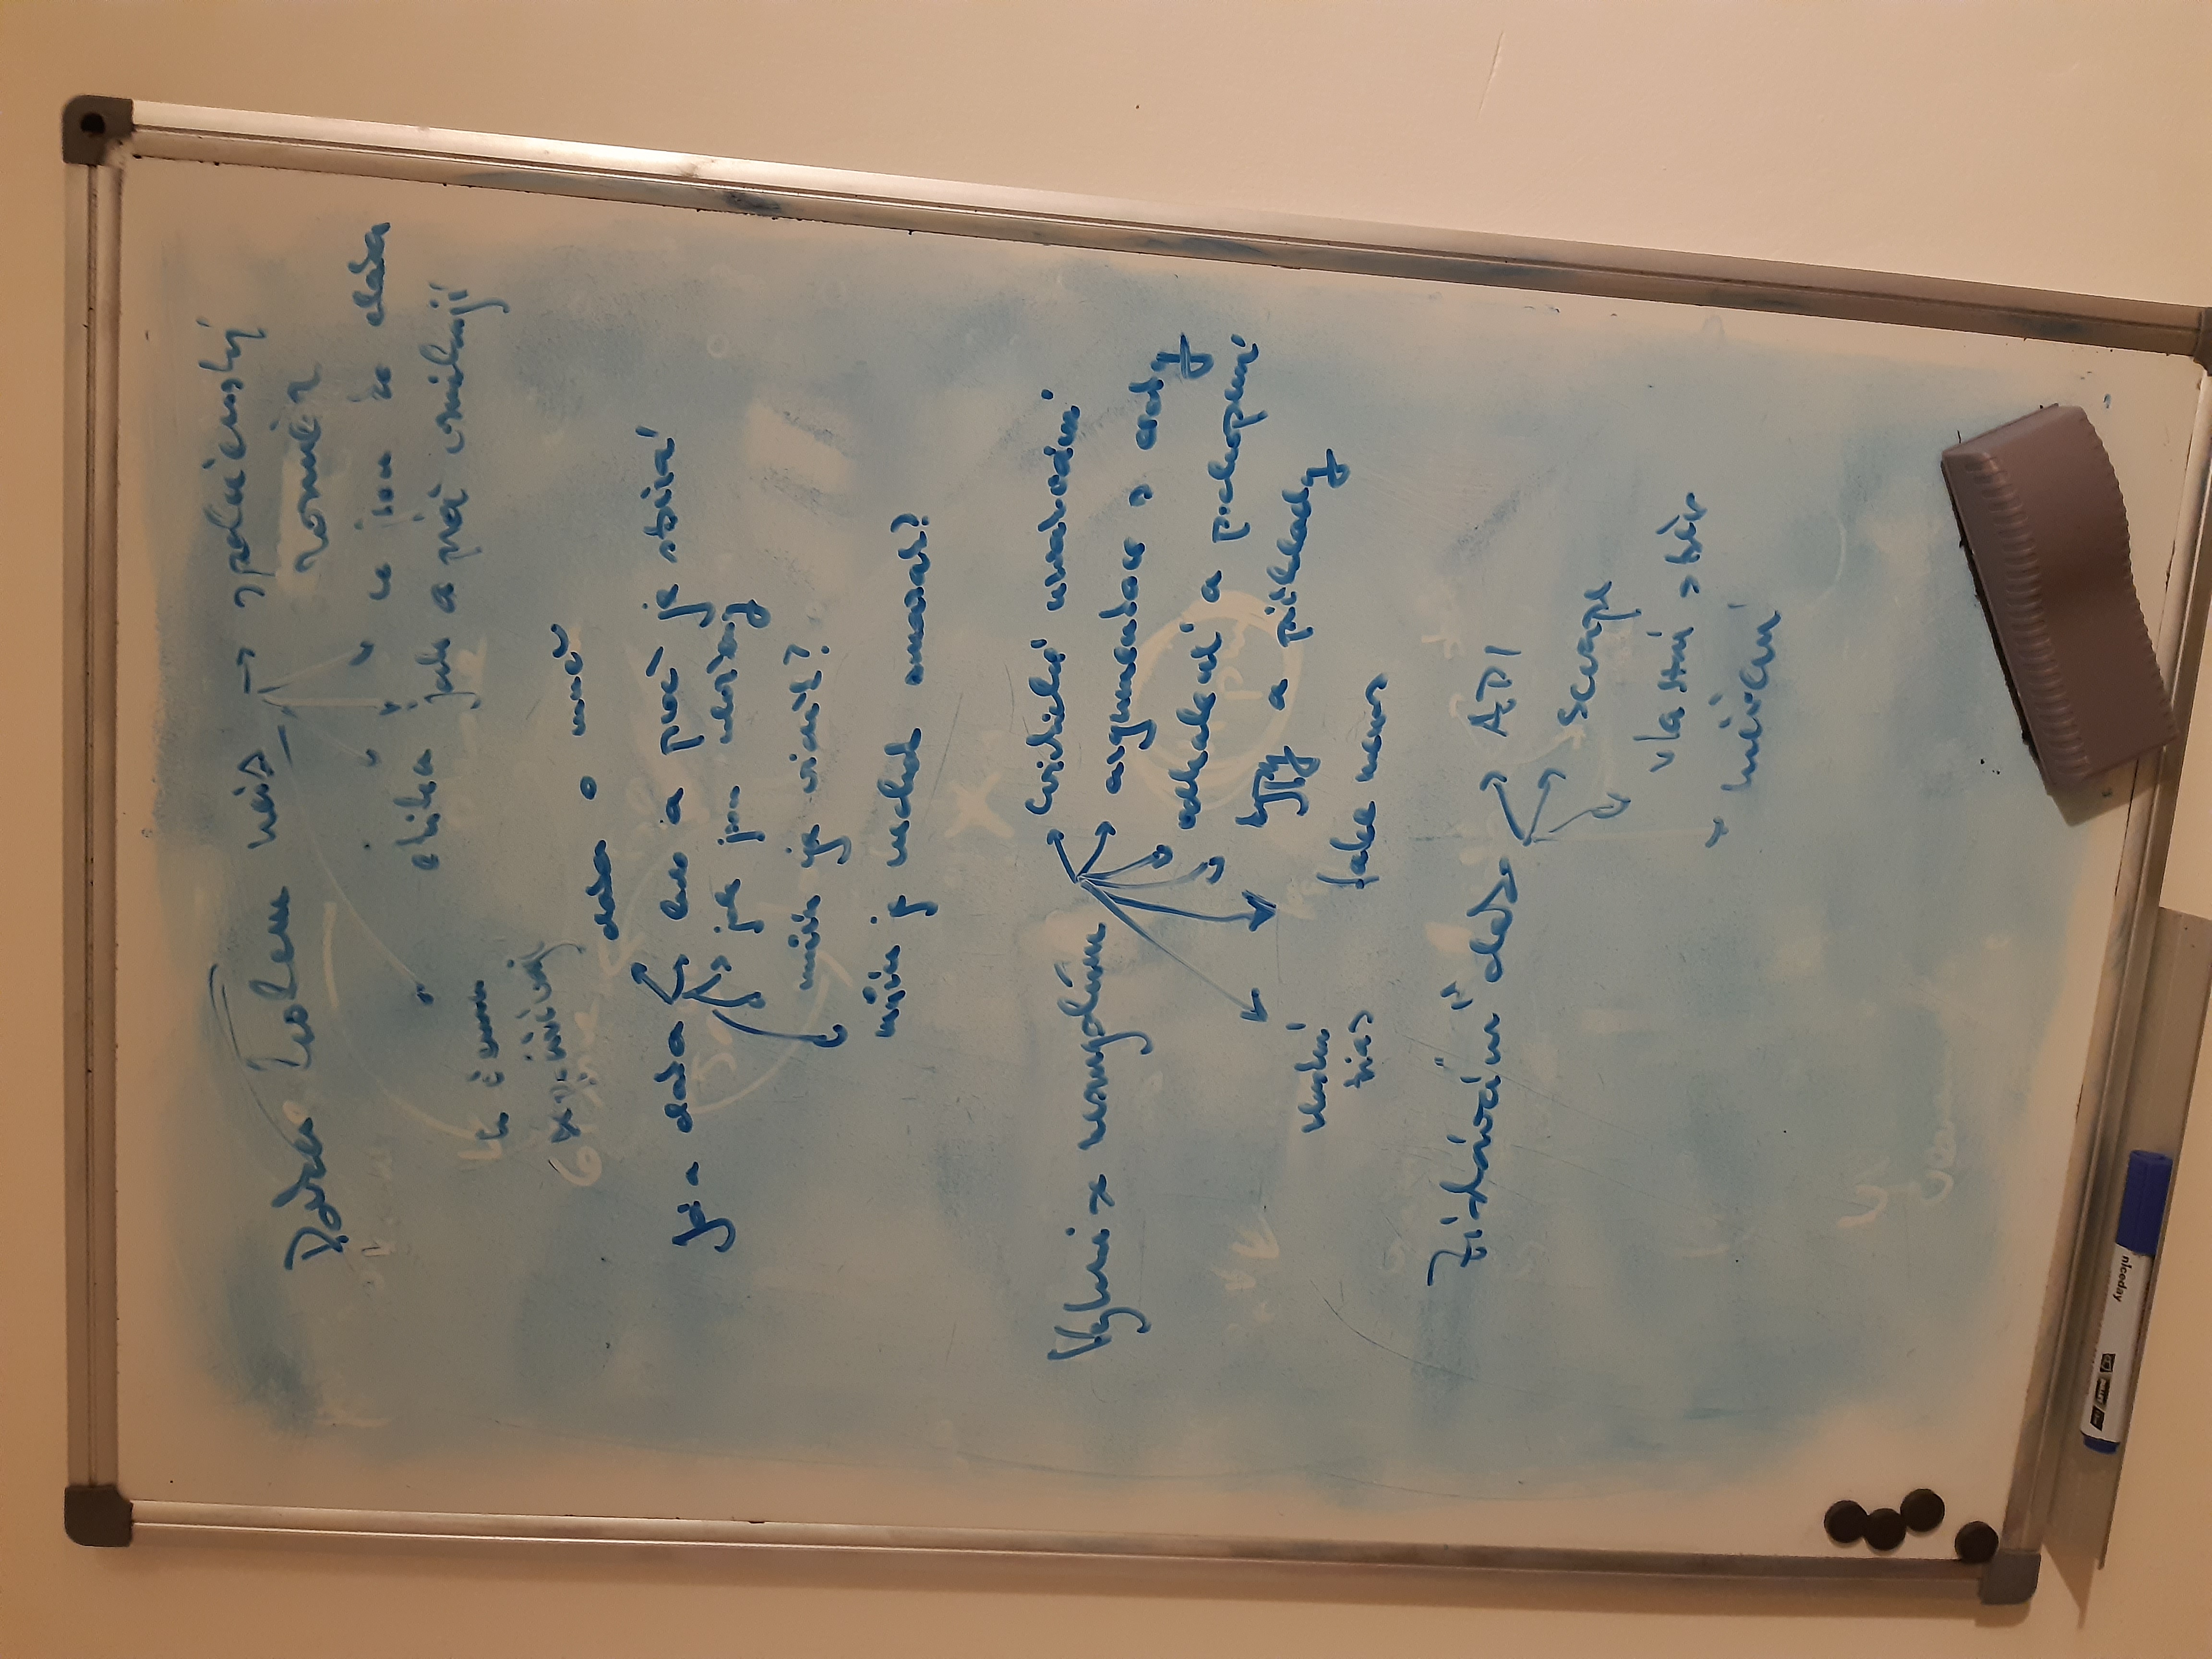 Data kolem nás → společenský
rozměr
co jsou to data
etika jak a proč vznikají
k čemu
se používají
data o mně
Já a data kdo a proč je sbírá
jak jsou uloženy
můžu je vidět?
můžu je nechat smazat?
Vyhni se nesmyslům kritické uvažování
argumentace s daty
odhalení a pochopení
typy a příklady
vlastní
bias
fake news
Získávání dat API
scrape
vlastní sběr
měření
niceday